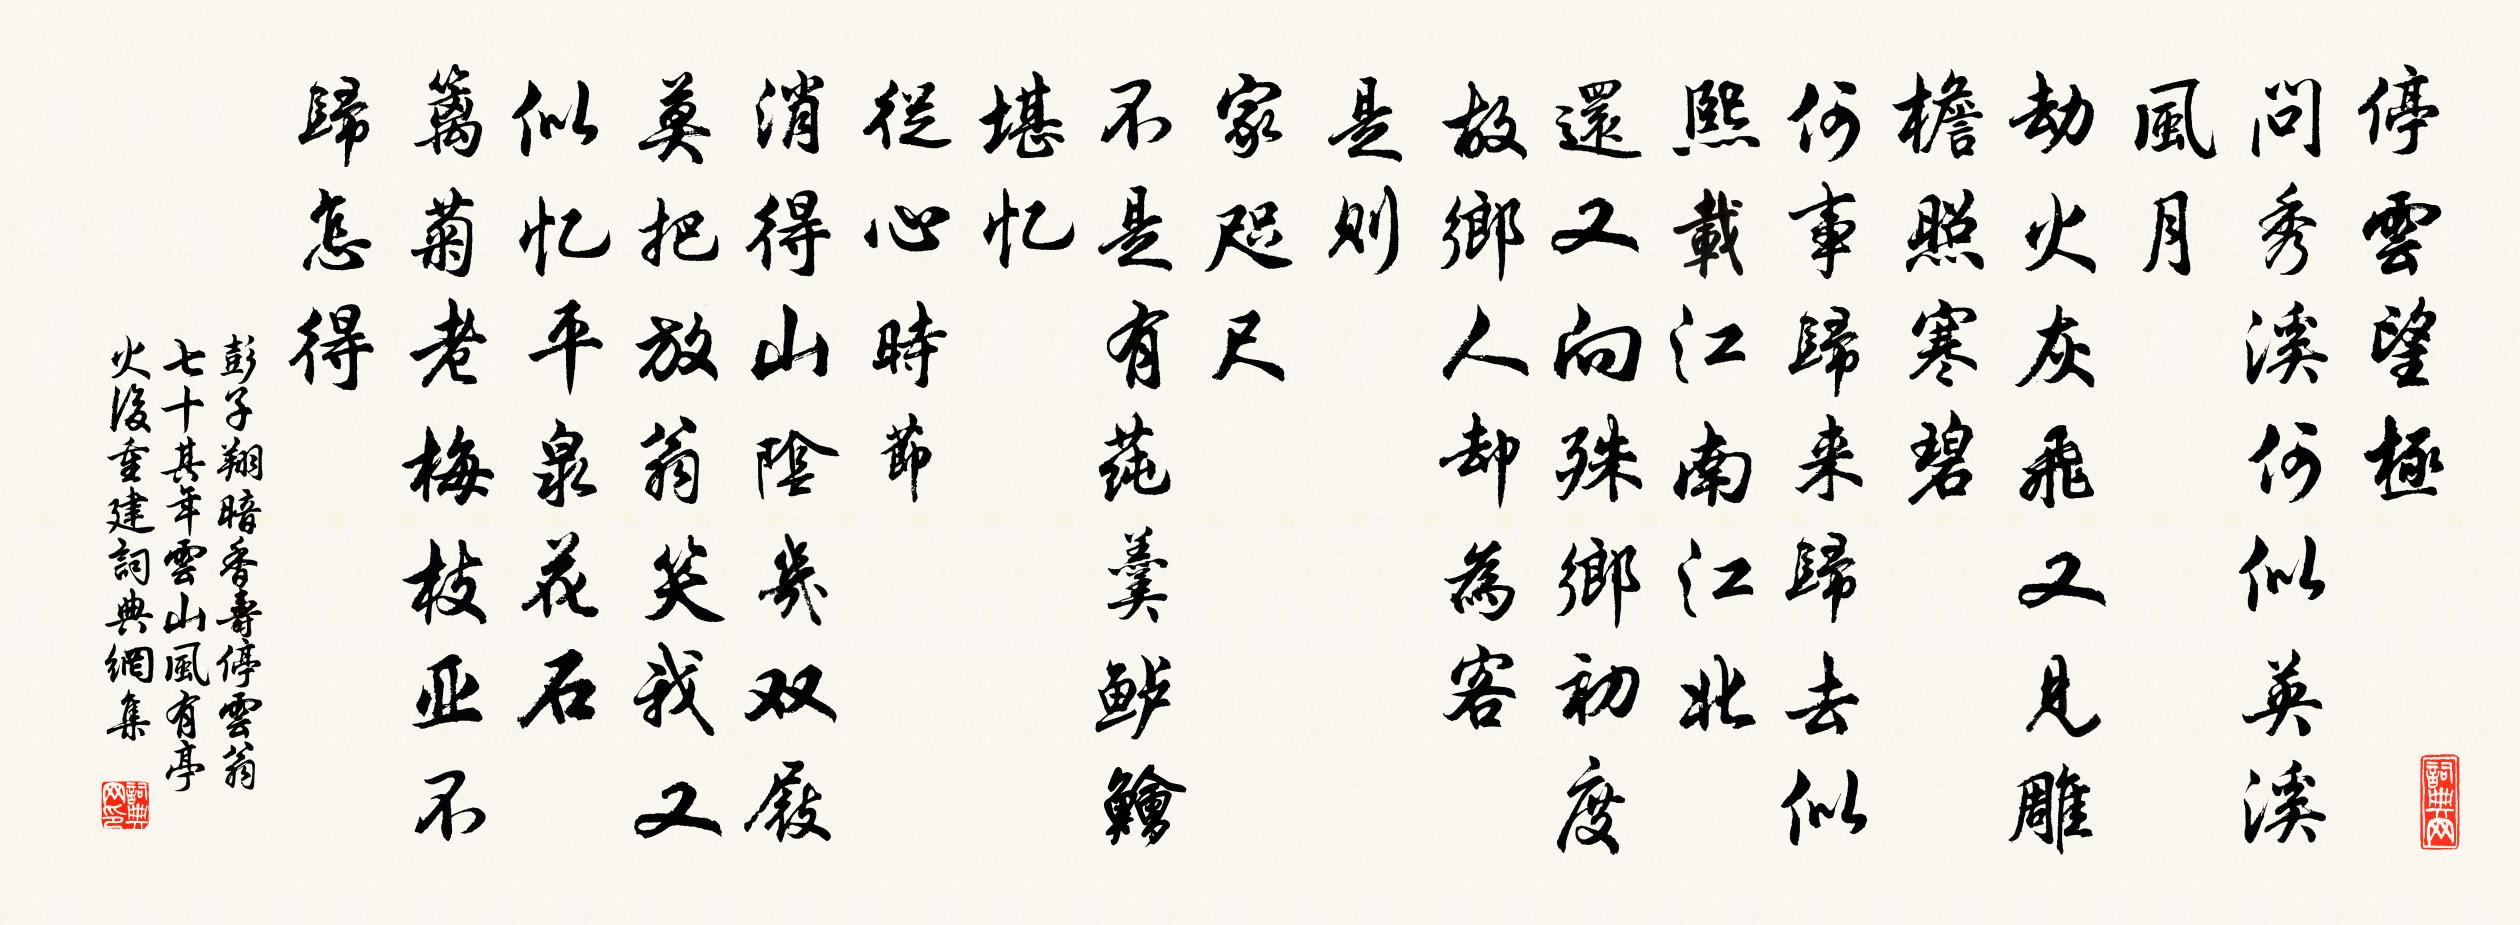 停雲望極
問秀溪何似英溪
風月
劫火灰飛又見雕
檐照寒碧
何事歸来歸去似
熙載江南江北
還又向殊鄉初度
故鄉人却為客
是则
家咫尺
不是有莼羹鲈鱠
堪忆
從心時節
消得山陰幾双屐
莫把放翁笑我又
似忆平泉花石
籬菊老梅枝亚不
歸怎得
彭子翔暗香壽停雲翁
七十其年雲山風有亭
火後重建詞典網集
詞典網
詞典网印